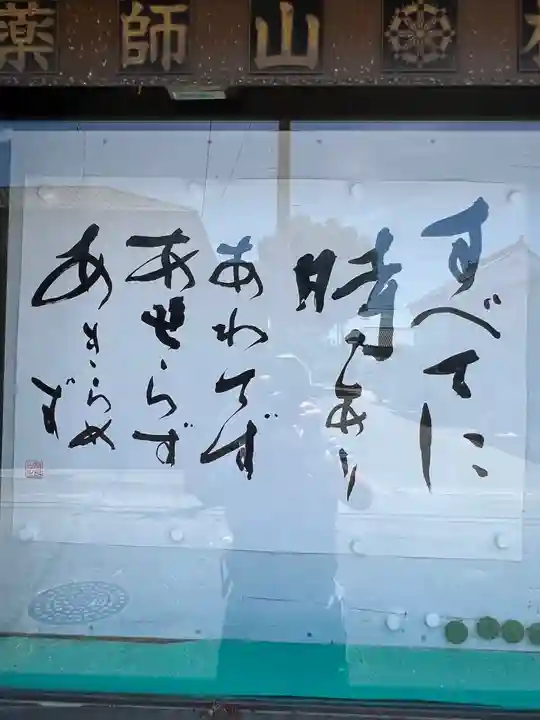 薬師山
すべてに
時あり
あわてず
あせらず
あきらめず